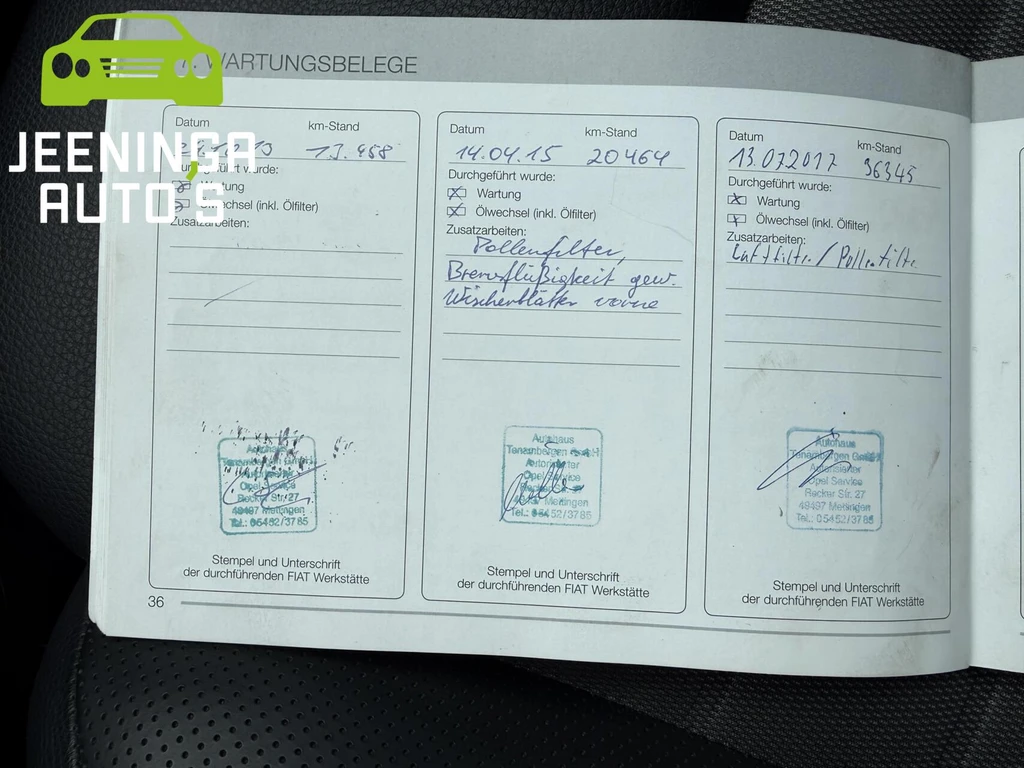 JEENINGA
AUTO'S
WARTUNGSBELEGE
Datum km-Stand
13.458
Durchgeführt wurde:
Wartung
Ölwechsel (inkl. Ölfilter)
Zusatzarbeiten:
Autohaus
Tenambergen GmbH
Autorisierter
Opel Service
Recker Str. 27
49497 Mettingen
Tel.: 05452/3785
Stempel und Unterschrift
der durchführenden FIAT Werkstätte
Datum km-Stand
14.04.15 20464
Durchgeführt wurde:
Wartung
Ölwechsel (inkl. Ölfilter)
Zusatzarbeiten:
Pollenfilter,
Bremsflüßigkeit gew.
Wischerblätter vorne
Autohaus
Tenambergen GmbH
Autorisierter
Opel Service
Recker Str. 27
49497 Mettingen
Tel.: 05452/3785
Stempel und Unterschrift
der durchführenden FIAT Werkstätte
Datum km-Stand
13.07.2017 36345
Durchgeführt wurde:
Wartung
Ölwechsel (inkl. Ölfilter)
Zusatzarbeiten:
Luftfilter / Pollenfilter
Autohaus
Tenambergen GmbH
Autorisierter
Opel Service
Recker Str. 27
49497 Mettingen
Tel.: 05452/3785
Stempel und Unterschrift
der durchführenden FIAT Werkstätte
36